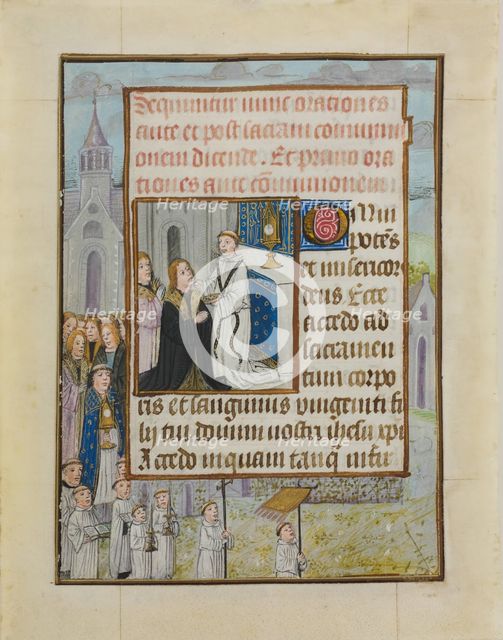 Sequuntur nunc orationes
ante et post sacram commun
onem dicende. Et primo ora
tiones ante cōmunionem
Omni
potēs
et misericor
deus Ecce
accedo ad
sacramen
tum corpo
ris et sanguinis unigeniti fi
lii tui domini nostri ihesu xpi
Accedo inquam tanq̄ infir
Heritage
Heritage
Heritage
Heritage
Heritage
Heritage
Heritage